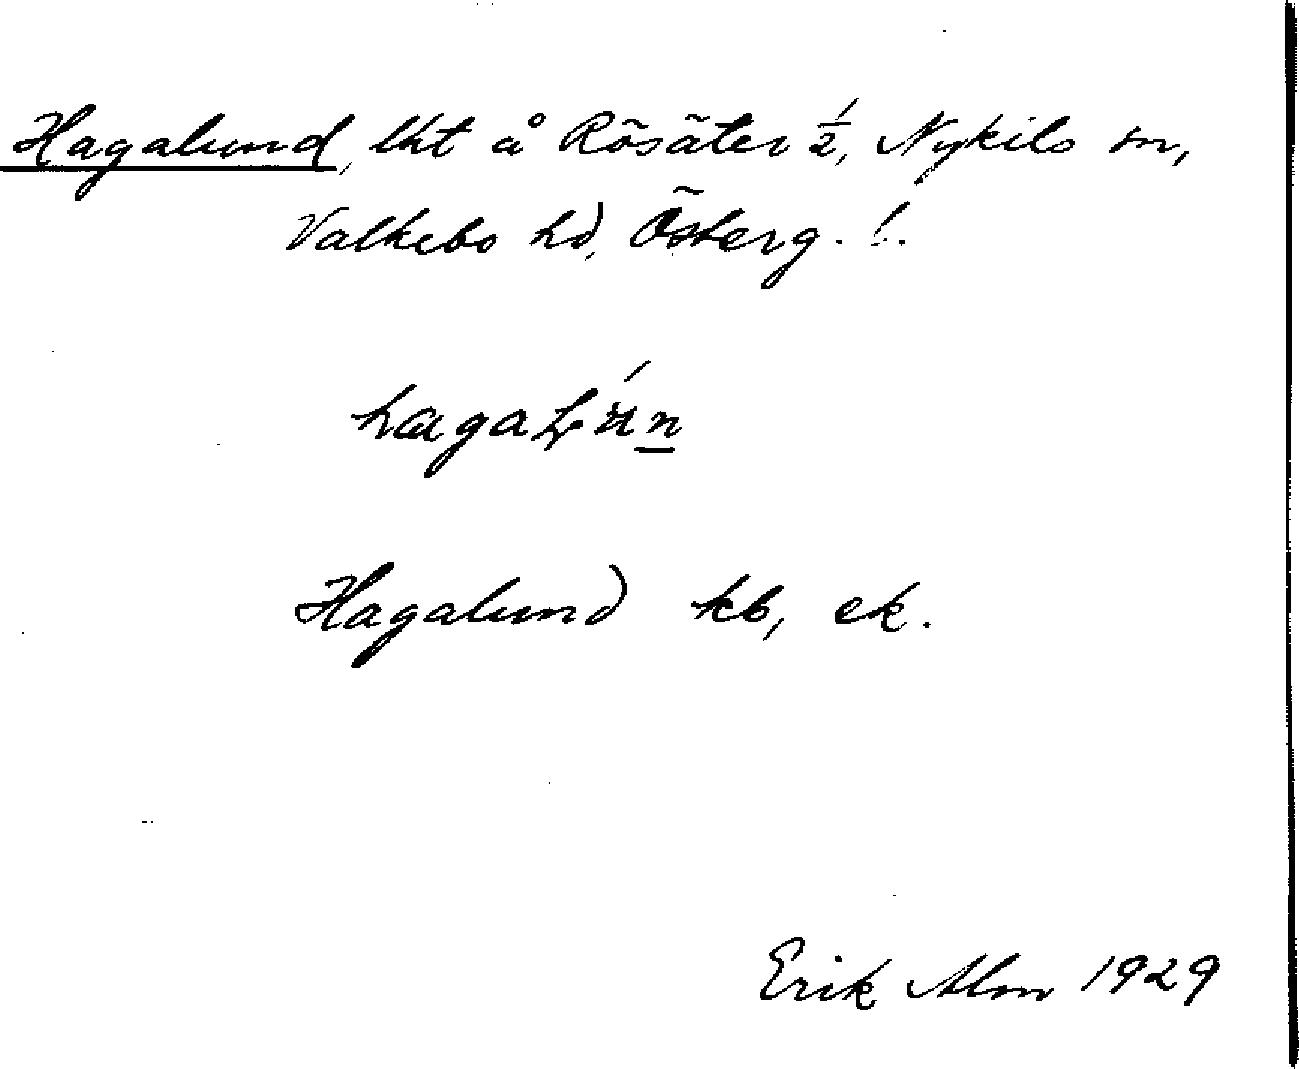 Hagalund, lht å Rösäter ½, Nykils sn,
Valkebo hd, Österg. l.
Hagalund kb, ek.
Erik Alm 1929